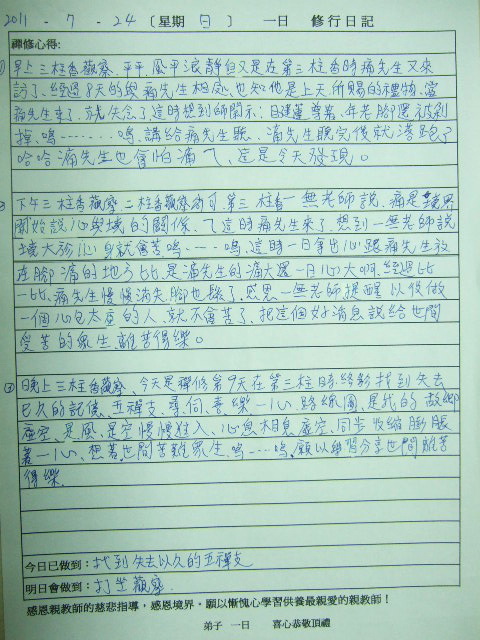 2011 - 7 - 24 〔星期 日 〕 一日 修行日記
禪修心得:
① 早上三柱香觀察、平平風平浪靜但又是在第三柱香時痛先生又來
訪了、經過8天的與痛先生相處、也知他是上天所賜的禮物、當
痛先生來了、就失念了這時想到師開示:目犍連尊者、年老腳還被剁
掉、嗚……嗚、講給痛先生聽、痛先生聽完後就落跑了
哈哈痛先生也會怕痛ㄟ、這是今天發現。
② 下午三柱香觀察二柱香觀察尚可第三柱香一無老師說、痛是境界
開始說心與境的關係、ㄟ這時痛先生來了、想到一無老師說
境大於心身就會苦嗚……嗚、這時一日拿出心跟痛先生放
在腳痛的地方比、是痛先生的痛大還一日心大啊、經過比
一比、痛先生慢慢消失、腳也鬆了、感恩一無老師提醒以後做
一個心包太虛的人、就不會苦了、把這個好消息說給世間
受苦的眾生、離苦得樂。
③ 晚上三柱香觀察、今天是禪修第9天在第三柱時終於找到失去
已久的記憶、五禪支、尋、伺、喜、樂、一心、路線圖、是我的故鄉
虛空、是風、是空慢慢進入、心息相息虛空、同步收縮膨脹
著一心、想著世間苦難眾生、嗚……嗚、願以練習分享世間離苦
得樂、
今日已做到: 找到失去以久的五禪支
明日會做到: 打坐觀察、
感恩親教師的慈悲指導，感恩境界。願以慚愧心學習供養最親愛的親教師！
弟子 一日 喜心恭敬頂禮